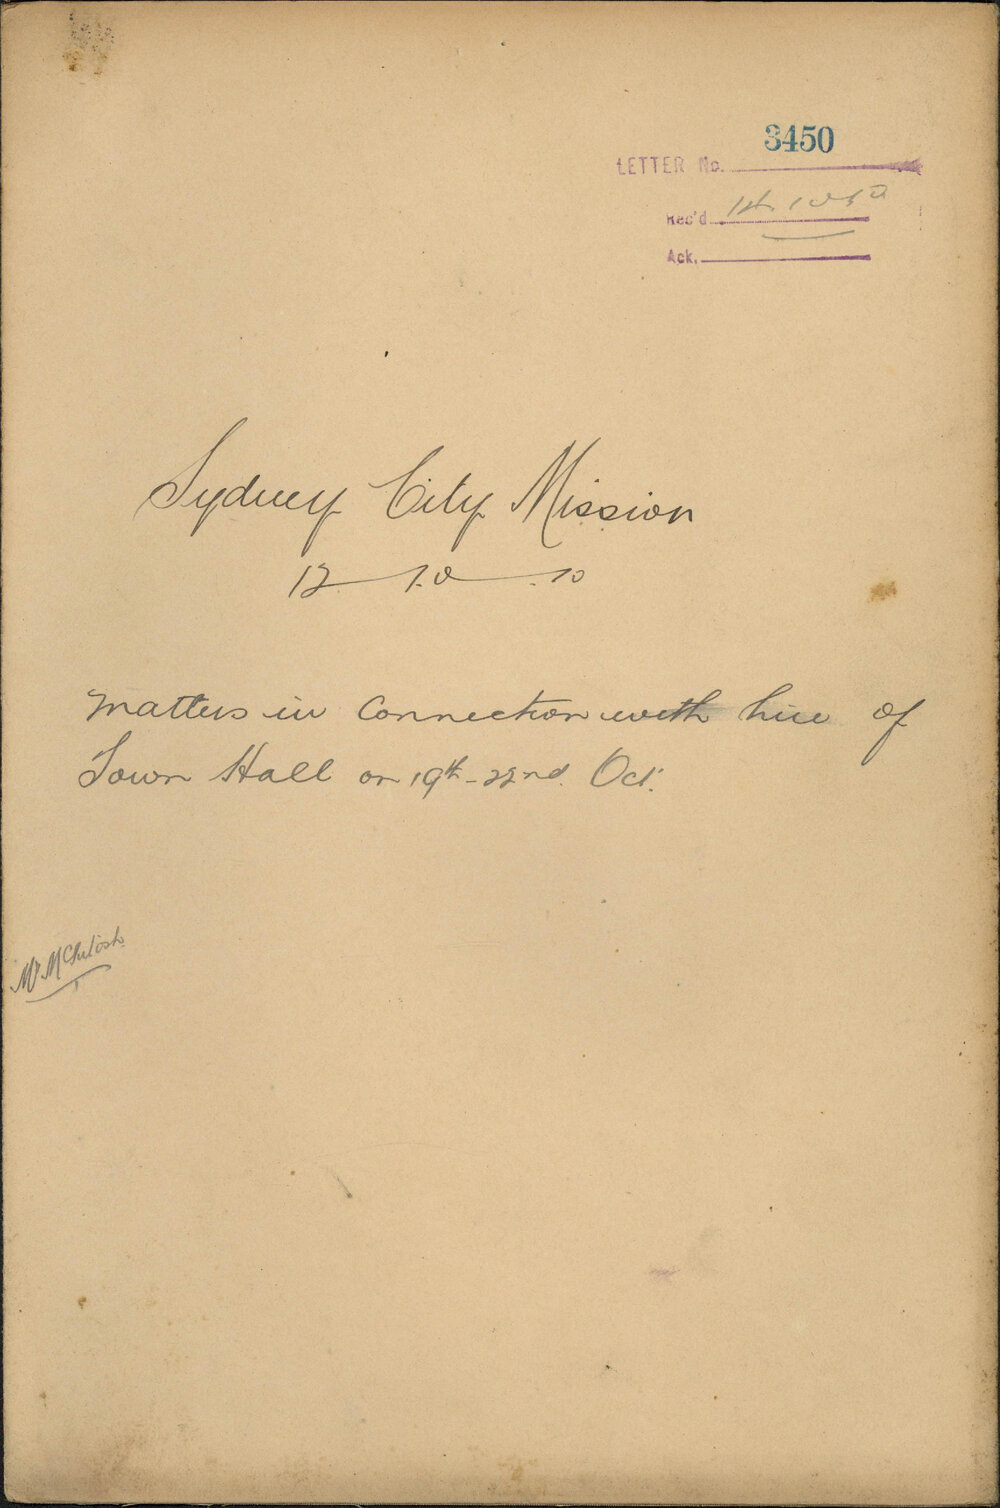 3450
LETTER No.
Rec'd
Ack.
Sydney City Mission
12 10 10
Matters in connection with hire of
Town Hall on 19th - 22nd Oct.
Mr McIntosh